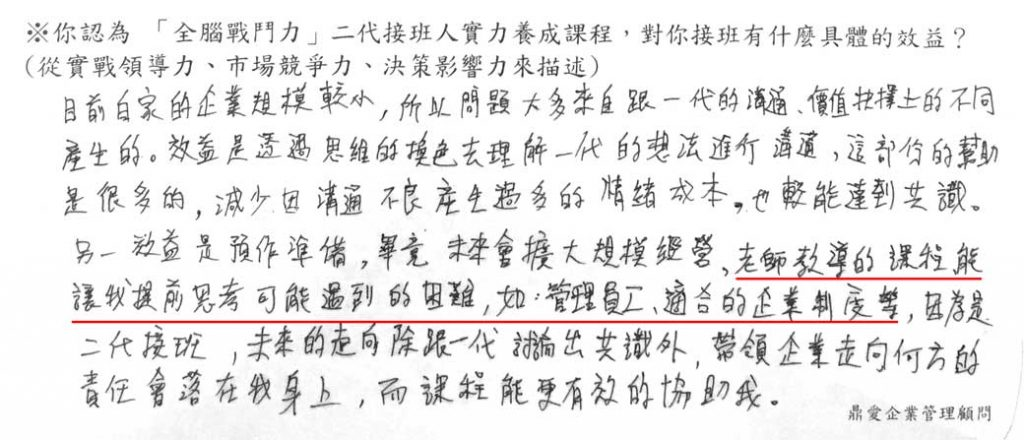 ※你認為 「全腦戰鬥力」二代接班人實力養成課程，對你接班有什麼具體的效益？
(從實戰領導力、市場競爭力、決策影響力來描述)
目前自家的企業規模較小，所以問題大多來自跟一代的溝通、價值抉擇上的不同
產生的。效益是透過思維的換色去理解一代的想法進行溝通，這部份的幫助
是很多的，減少因溝通不良產生過多的情緒成本。也較能達到共識。
另一效益是預作準備，畢竟未來會擴大規模經營，老師教導的課程能
讓我提前思考可能遇到的困難，如：管理員工、適合的企業制度等，是
二代接班，未來的走向除跟一代討論出共識外，帶領企業走向何方的
責任會落在我身上，而課程能更有效的協助我。
鼎愛企業管理顧問